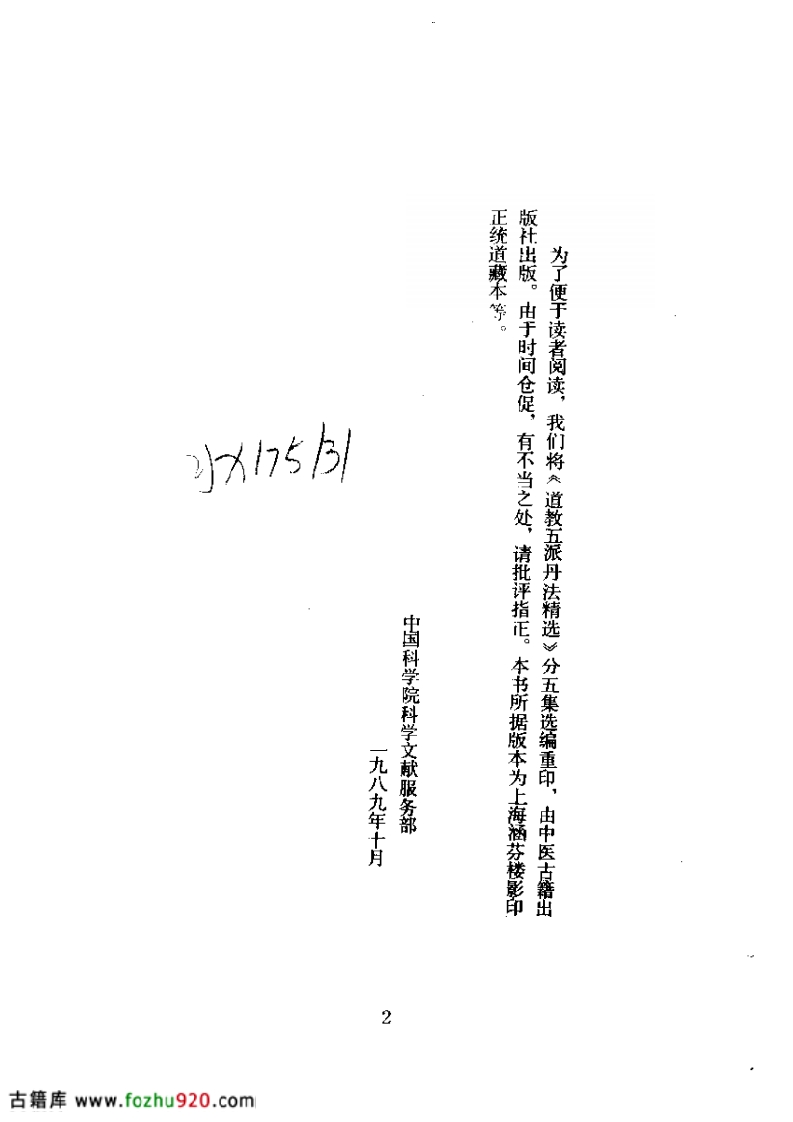 为了便于读者阅读，我们将《道教五派丹法精选》分五集选编重印，由中医古籍出
版社出版。由于时间仓促，有不当之处，请批评指正。本书所据版本为上海涵芬楼影印
正统道藏本等。
中国科学院科学文献服务部
一九八九年十月
X175/31
2
古籍库 www.fozhu920.com